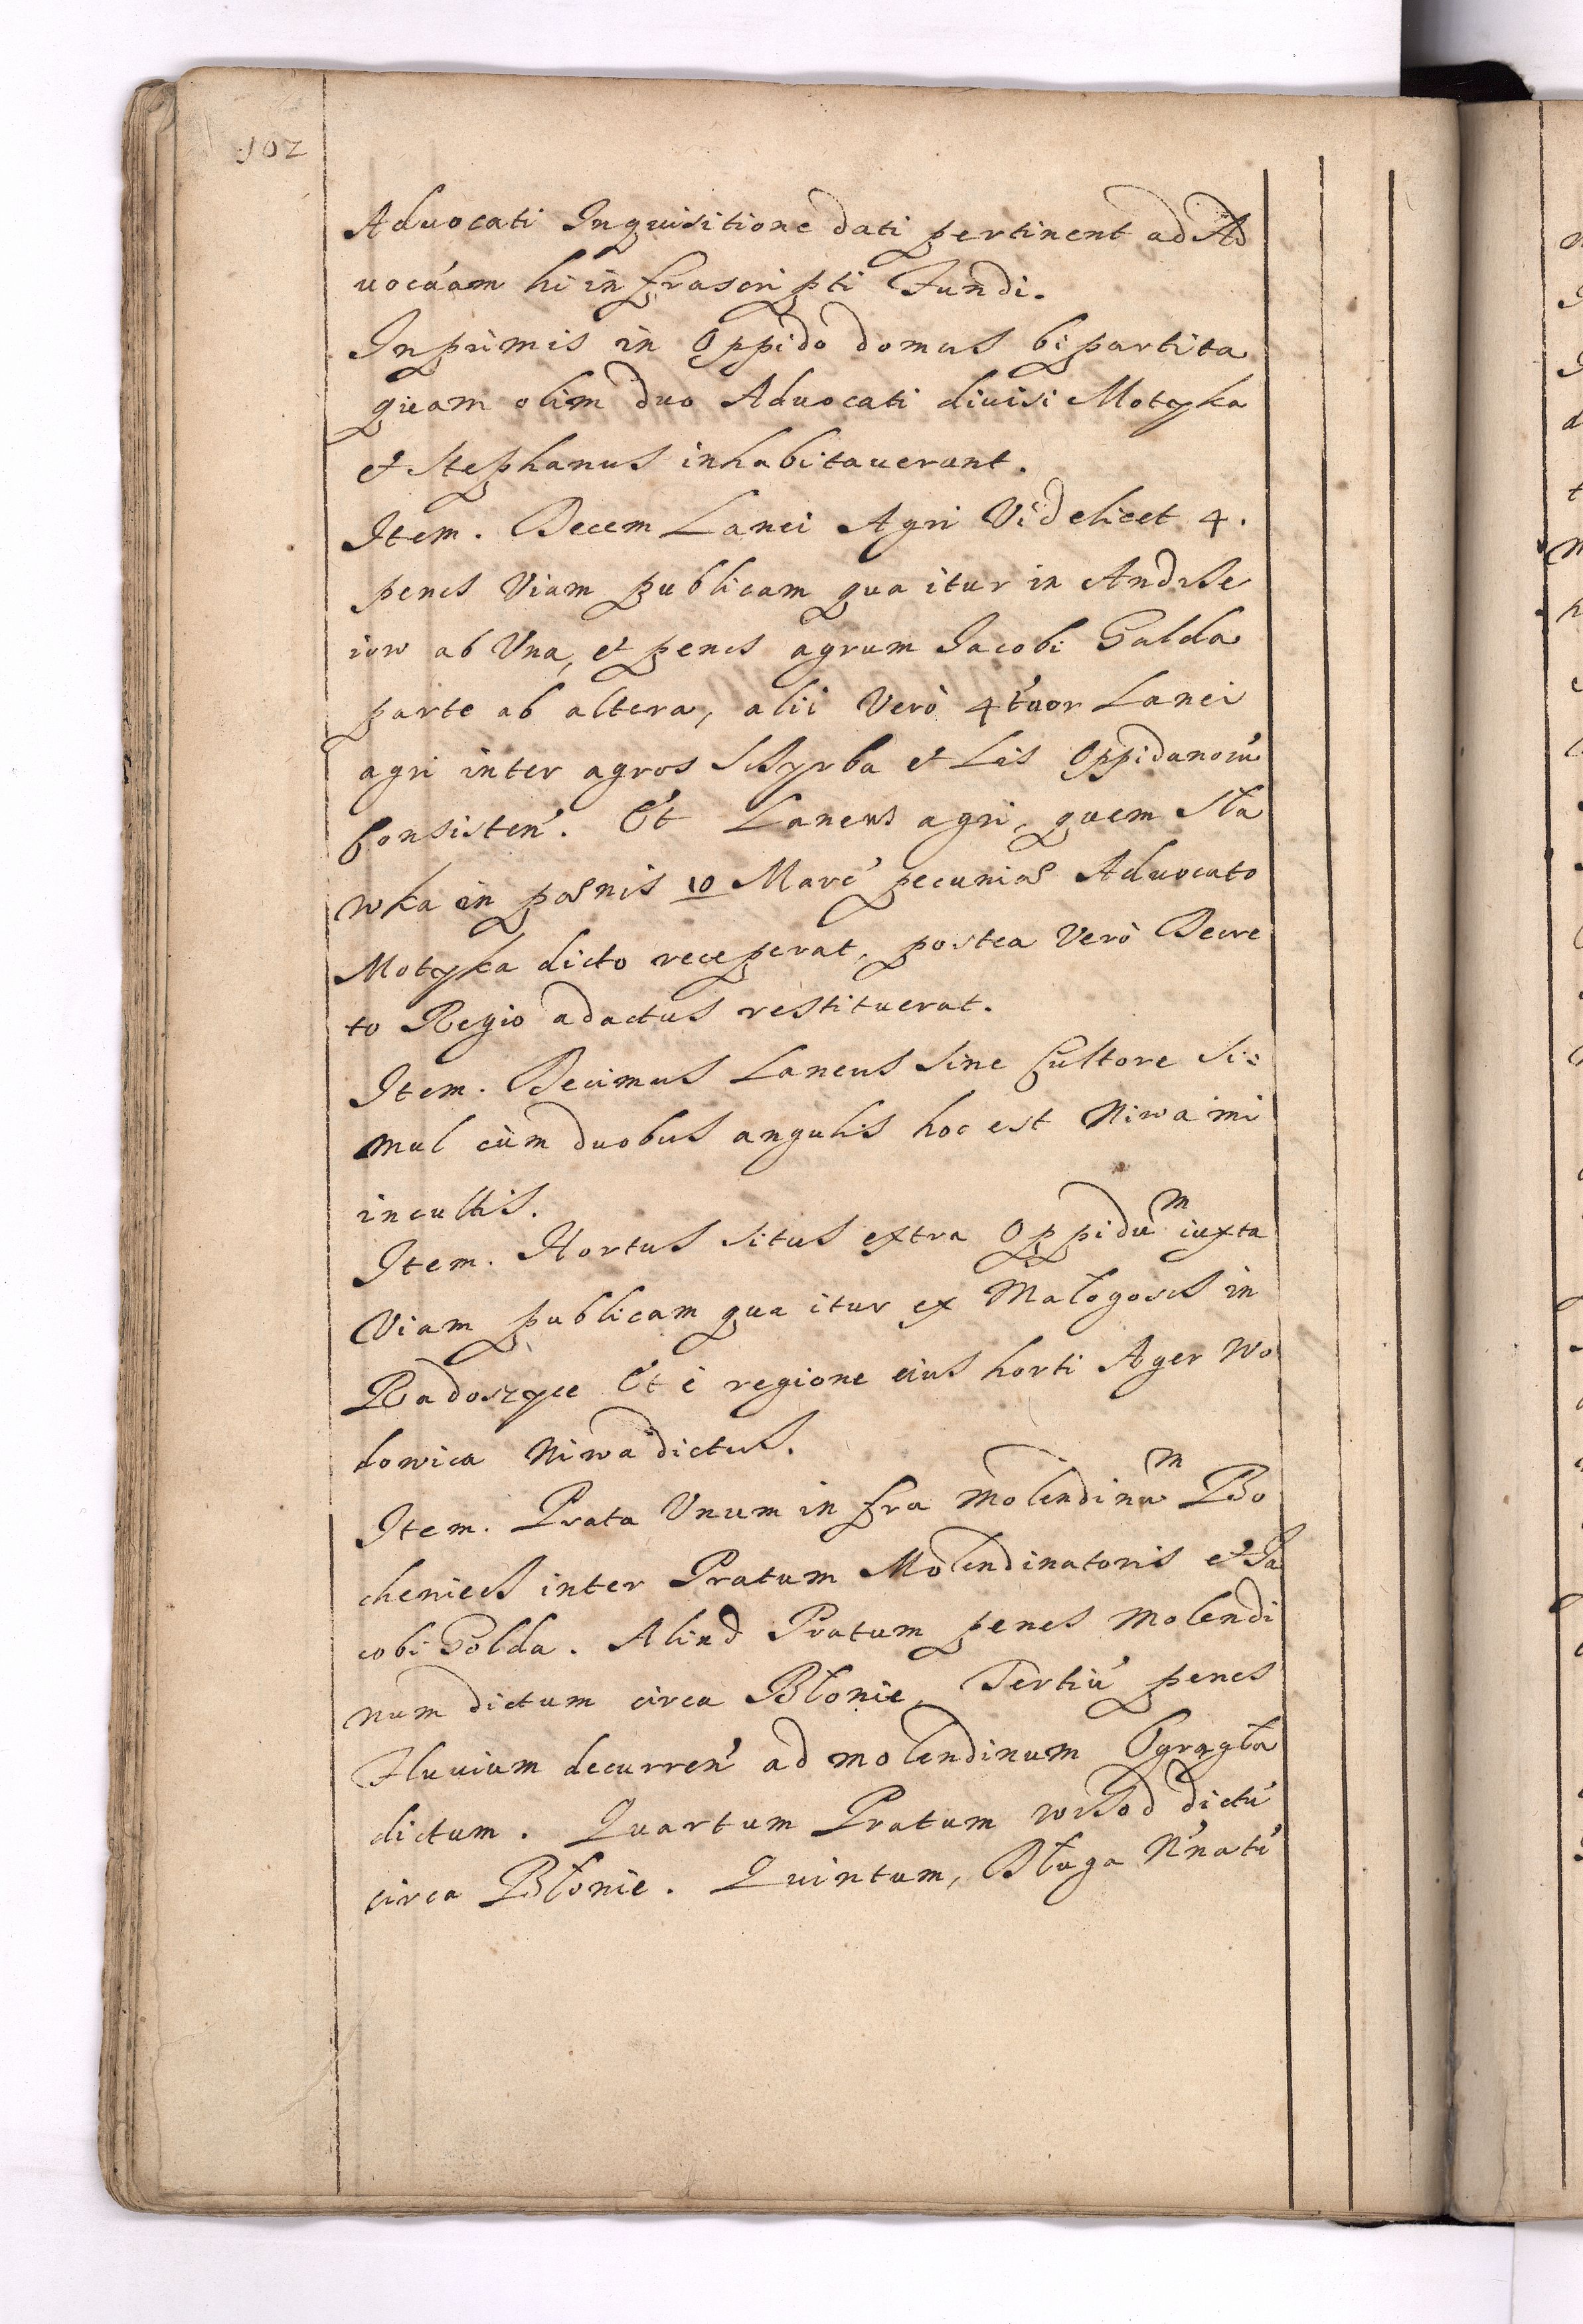 102
Aduocati Inquisitione dati pertinent ad Ad
uocaam hi infrascripti Fundi.
Inprimis in Oppido domus bipartita
quam olim duo Aduocati diuisi Motyka
et Stephanus inhabitauerunt.
Item. Decem Lanei Agri Videlicet 4.
penes Viam publicam qua itur in Andrze
iow ab Una, et penes agrum Jacobi Galda
parte ab altera, alii Verò 4tuor Lanei
agri inter agros Szyrba et Lis Oppidanorũ
Consisten'. Et Laneus agri, quem Sła
wka in pœnis 10 Marc' pecuniæ Aduocato
Motyka dicto receperat, postea Verò Decre
to Regio adactus restituerat.
Item. Decimus Laneus sine Cultore si:
mul cùm duobus angulis hoc est Niwami
incultis.
Item. Hortus situs extra Oppidum iuxta
Viam publicam qua itur ex Małogoscz in
Radoszyce Et è regione eius horti Ager Wo
dowica Niwa dictus.
Item. Prata Unum infra molendinum Bo
cheniecz inter Pratum Molendinatoris et Ja
cobi Golda. Aliud Pratum penes molendi
num dictum circa Błonie, Tertiu' penes
Fluuium decurren' ad molendinum
dictum. Quartum Pratum wrzod dictu'
circa Błonie. Quintum, Długa N'nati'